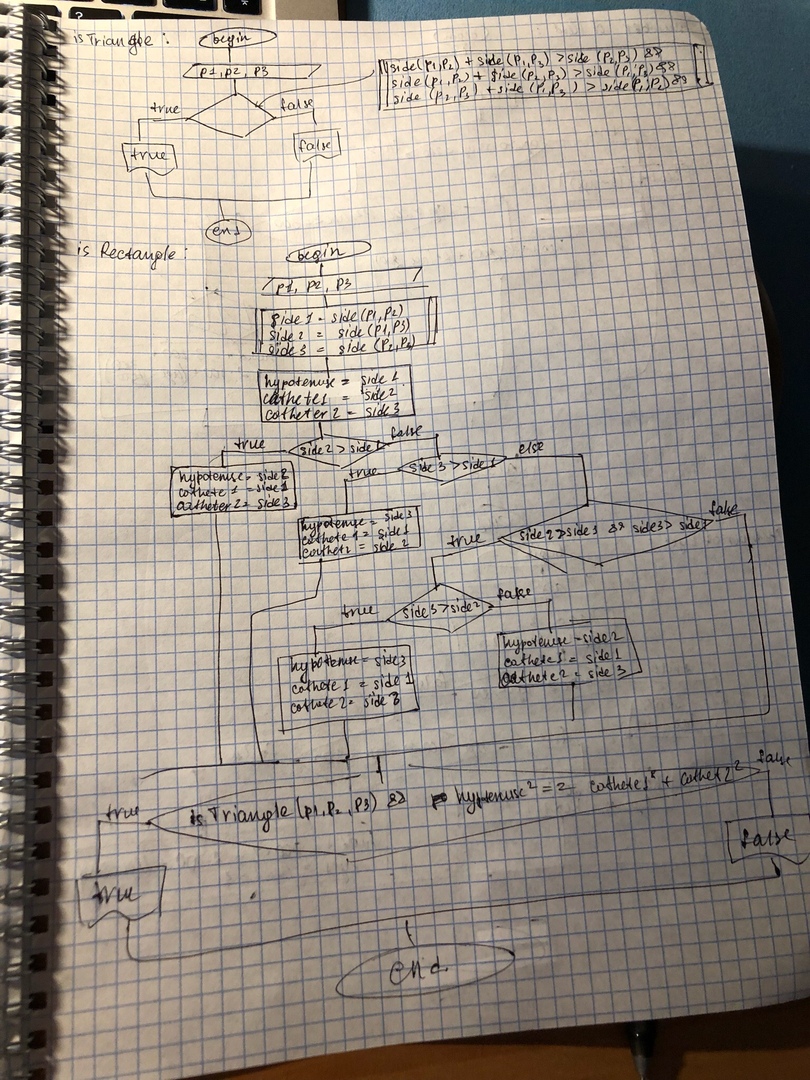 isTriangle :
begin
p1, p2, p3
side(p1,p2) + side (p1,p3) > side (p2,p3) &&
side(p1,p2) + side (p2,p3) > side(p1,p3) &&
side (p2,p3) + side (p1,p3) > side(p1,p2) &&
true
false
true
false
end
is Rectangle :
begin
p1, p2, p3
side 1 = side (p1,p2)
side 2 = side (p1,p3)
side 3 = side (p2,p3)
hypotenuse = side 1
cathete1 = side 2
catheter 2 = side 3
true
side 2 > side 1
false
true
side 3 > side 1
else
hypotenuse = side 2
cathete 1 = side 1
catheter 2 = side 3
hypotenuse = side 3
cathete 1 = side 1
cathet 2 = side 2
true
side 2 > side 1 && side 3 > side 1
false
true
side 3 > side 2
false
hypotenuse = side 3
cathete 1 = side 1
cathete 2 = side
hypotenuse = side 2
cathete 1 = side 1
cathete 2 = side 3
true
is Triangle (p1, p2, p3) && hyptenuse² = = cathete1² + cathet2²
false
true
false
end